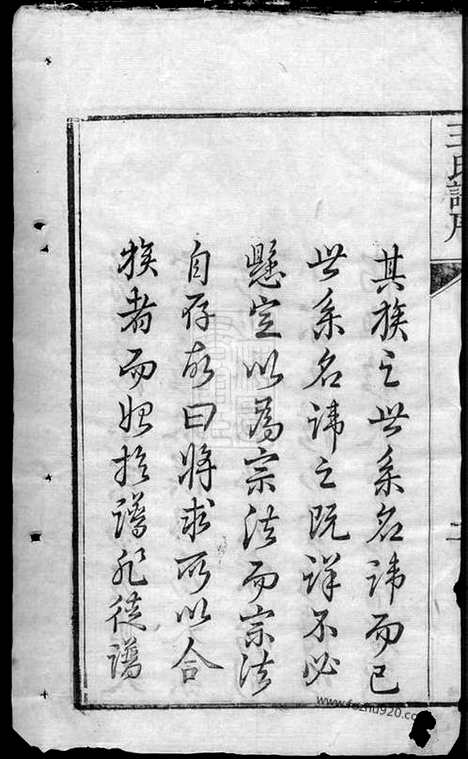 其族之世系名諱而已
世系名諱之既詳不必
懸定以爲宗法而宗法
自存故曰將求所以合
族者而始於譜非徒譜
王氏譜序
二
www.fozhu920.com